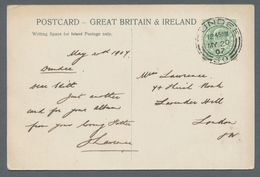 POSTCARD — GREAT BRITAIN & IRELAND
Writing Space for Inland Postage only.
DUNDEE
MY 20
07
May 20th 1907
Dundee
Dear
Just another
card for your album
from your loving Father
Lawrence
Miss Lawrence
Lavender Hill
London
SW